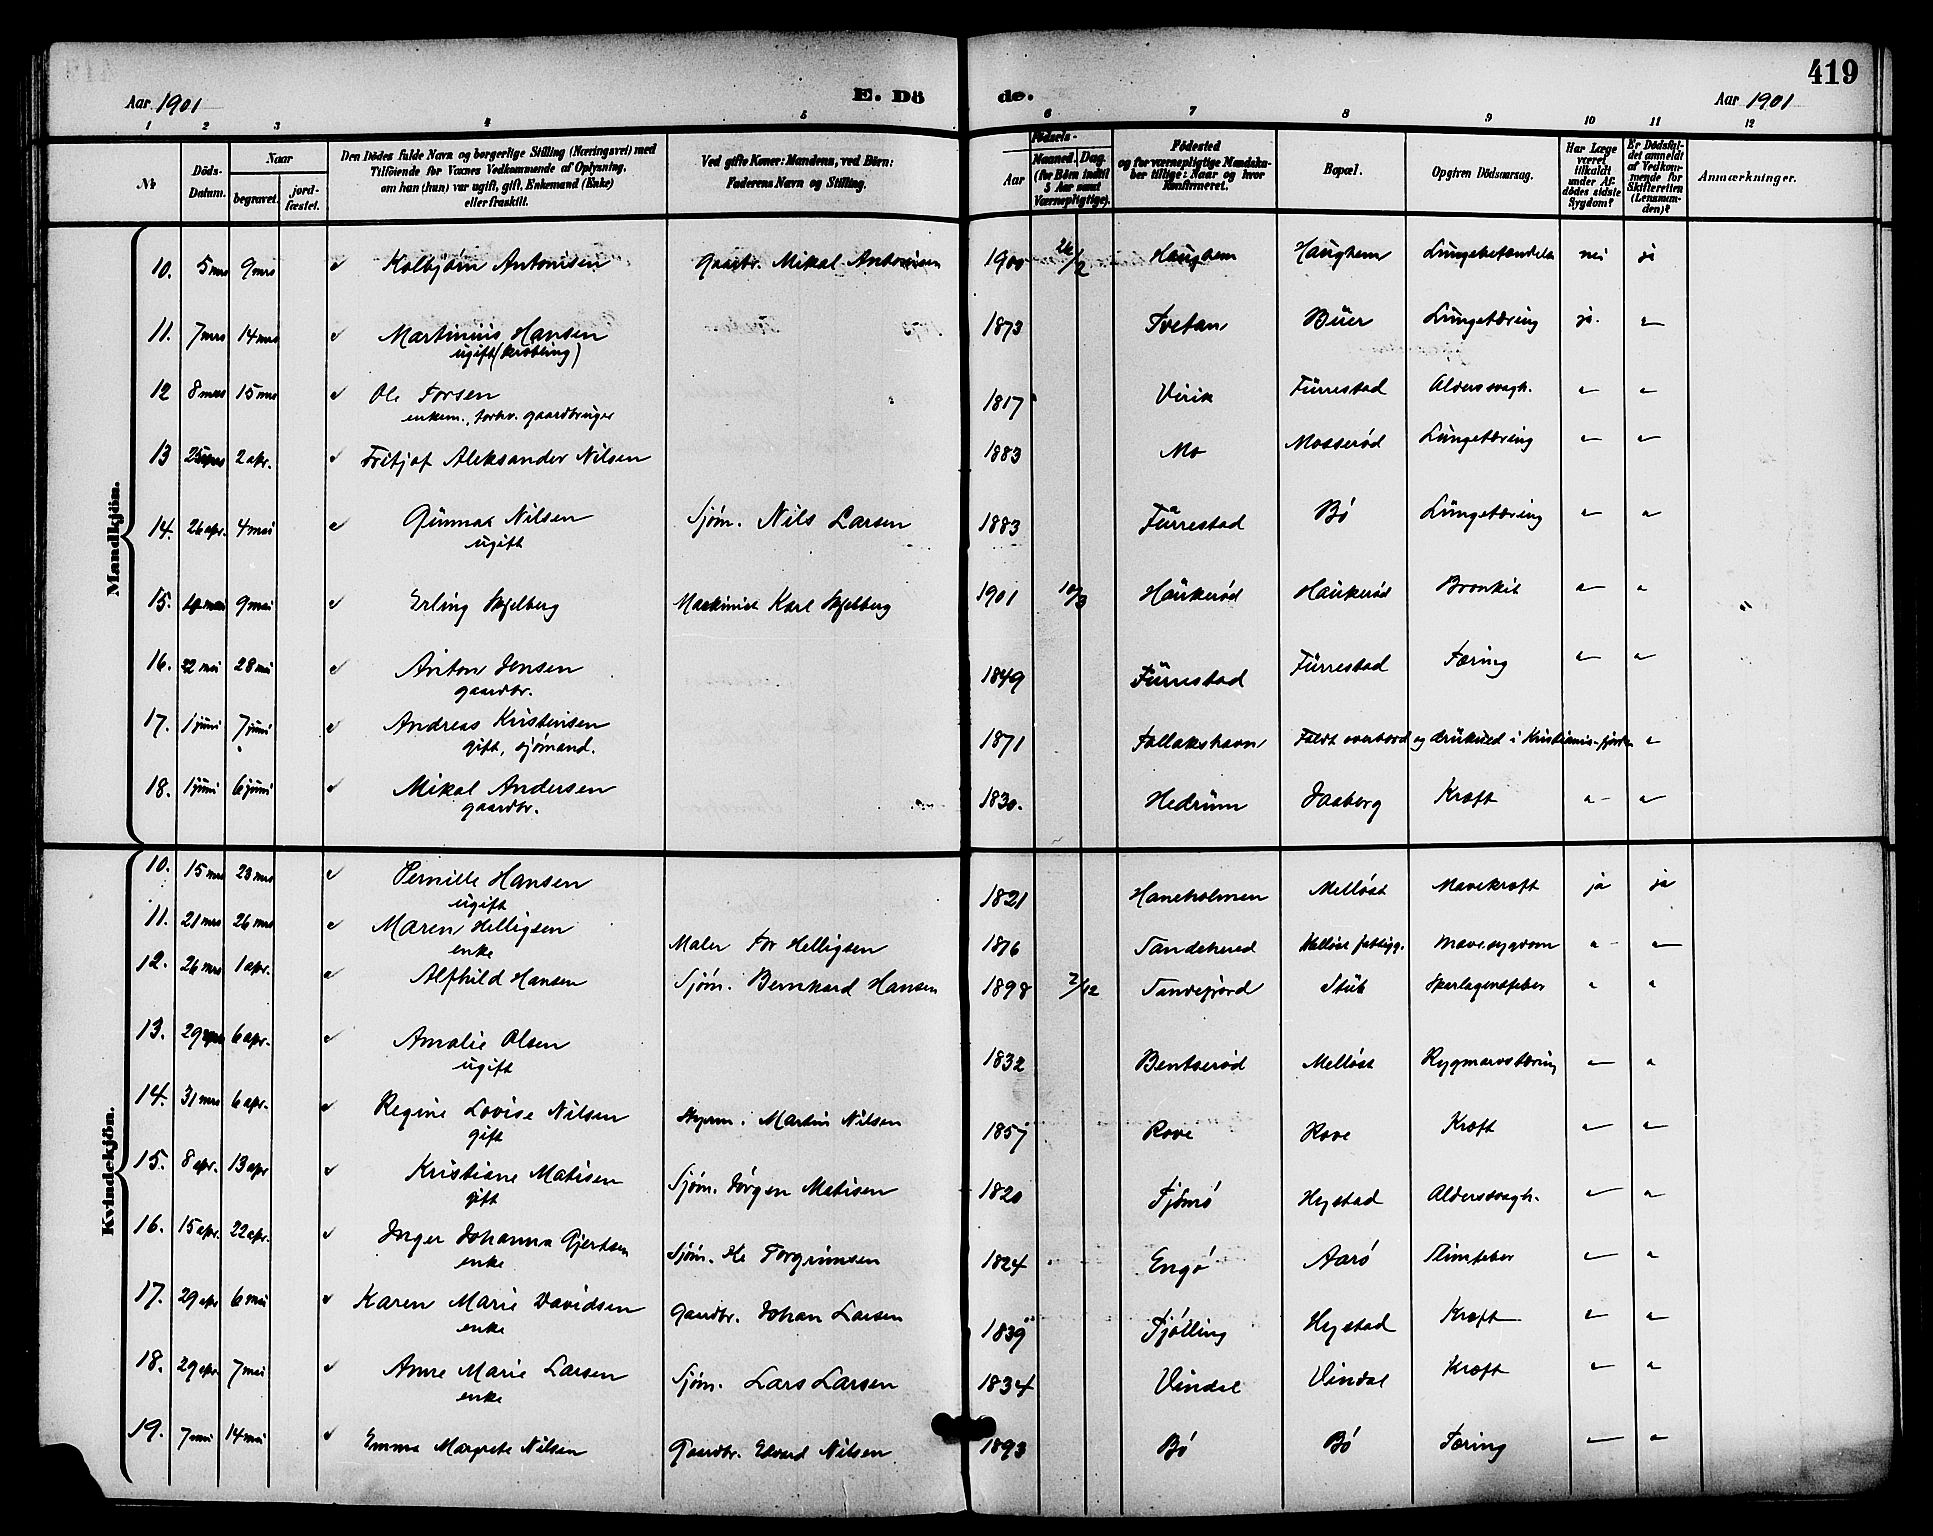 419
Aar 1901
E. Dö
de.
Aar 1901
1 2 3 4 5 6 7 8 9 10 11 12
№
Döds-Datum.
Naar
begravet.
jord-fæstet.
Den Dödes fulde Navn og borgerlige Stilling (Næringsvei) med Tilföiende for Voxnes Vedkommende af Oplysning, om han (hun) var ugift, gift, Enkemand (Enke) eller fraskilt.
Ved gifte Koner: Mandens, ved Börn: Faderens Navn og Stilling.
Födsels-
Aar
Maaned. Dag.
(for Börn indtil 5 Aar samt Værnepligtige).
Födested og for værnepligtige Mandskaber tillige: Naar og hvor Konfirmeret.
Bopæl.
Opgiven Dödsaarsag.
Har Læge været tilkaldt under Afdödes sidste Sygdom?
Er Dödsfaldet anmeldt af Vedkommende for Skifteretten (Lensmanden)?
Anmærkninger.
Mandkjön.
10. 5 mrs 9 mrs Kolbjörn Antonisen Gaardbr. Mikal Antonisen 1900 26/2 Haughem Haughem Lungebetændelse nei ja
11. 7 mrs 14 mrs Martinius Hansen 1873 Tvetan Buer Lungetæring ja. "
ugift (kröbling)
12 8 mrs 15 mrs Ole Torsen 1817 Virik Furrestad Alderssvagh. " "
enkem., forhv. gaardbruger
13 25 mrs 2 apr. Fritjof Aleksander Nilsen 1883 Mo Mosserød Lungetæring " "
14. 26 apr. 4 mai Gunnar Nilsen Sjöm. Nils Larsen 1883 Furrestad Bö Lungetæring " "
ugift
15. 4 mai 9 mai Erling Skjelberg Maskinist Karl Skjelberg 1901 10/3 Haukerød Haukerød Bronkit " "
16. 22 mai 28 mai Anton Jensen 1849 Furrestad Furrestad Tæring " "
gaardbr.
17. 1 juni 7 juni Andreas Kristensen 1871 Follakshavn Faldt overbord og drukned i Kristianiafjorden "
gift, sjömand.
18. 1 juni 6 juni Mikal Andersen 1830. Hedrum Jaaberg Kræft " "
gaardbr.
Kvindekjön.
10. 15 mrs 23 mrs Pernille Hansen 1821 Haneholmen Melløst Mavekræft ja ja
ugift
11. 21 mrs 26 mrs Maren Helligsen Maler Tor Helligsen 1816 Sandeherred Melløst fattigg. Mavesygdom " "
enke
12. 26 mrs 1 apr. Alfhild Hansen Sjöm. Bernhard Hansen 1898 2/12 Sandefjord Stub Skarlagensfeber " "
13. 29 mrs 6 apr. Amalie Olsen 1832 Bentserød Melløst Rygmarvstæring " "
ugift
14. 31 mrs 6 apr. Regine Lovise Nilsen Styrm. Martin Nilsen 1857 Rove Rove Kræft " "
gift
15. 8 apr. 13 apr Kristiane Matisen Sjöm. Jörgen Matisen 1820 Tjömö Hystad Alderssvagh. " "
gift
16. 15 apr. 22 apr. Inger Johanna Gjertsen Sjöm. He Torgrimsen 1824 Engö Aarö Slimfeber " "
enke
17. 29 apr 6 mai Karen Marie Davidsen Gaardbr. Johan Larsen 1839 Tjölling Hystad Kræft " "
enke
18. 29 apr. 7 mai Anne Marie Larsen Sjöm. Lars Larsen 1834 Vindal Vindal Kræft " "
enke
19. 7 mai 14 mai Emma Margrete Nilsen Gaardbr. Edvard Nilsen 1893 Bö Bö Tæring " "